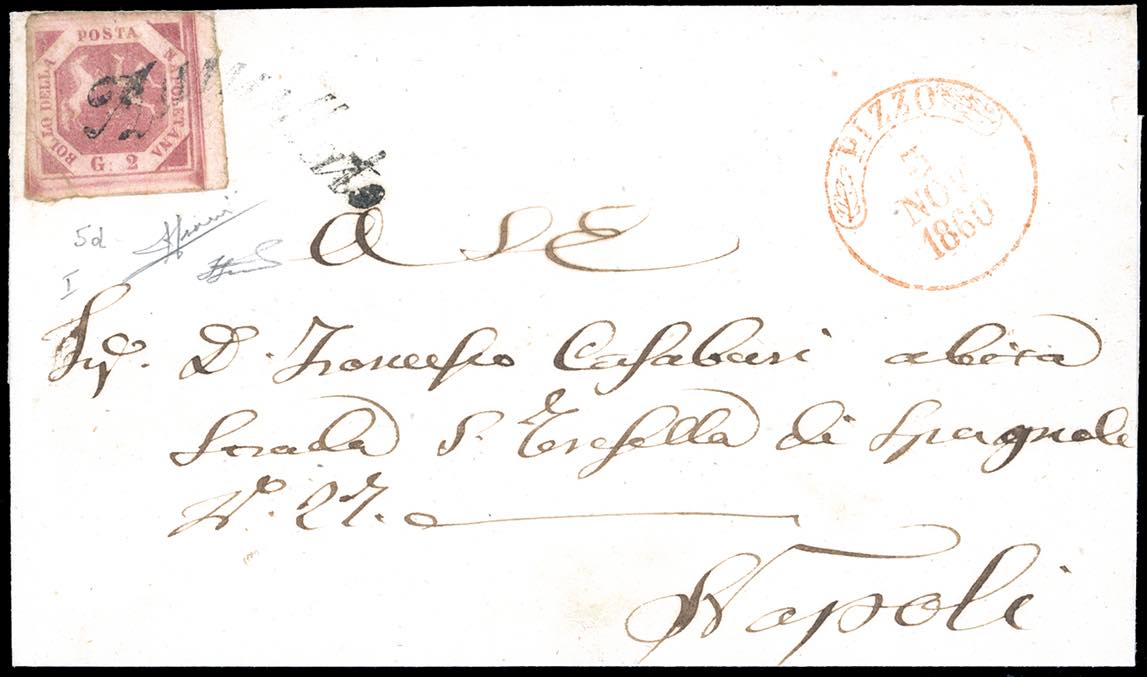 POSTA
NAPOLETANA
BOLLO DELLA
G. 2
Annullato
PIZZO
3
NOV
1860
5d
I
A S E
Sig. D. Francesco Casaburi abita
Strada S. Teresella di Spagnoli
N. 27.
Napoli